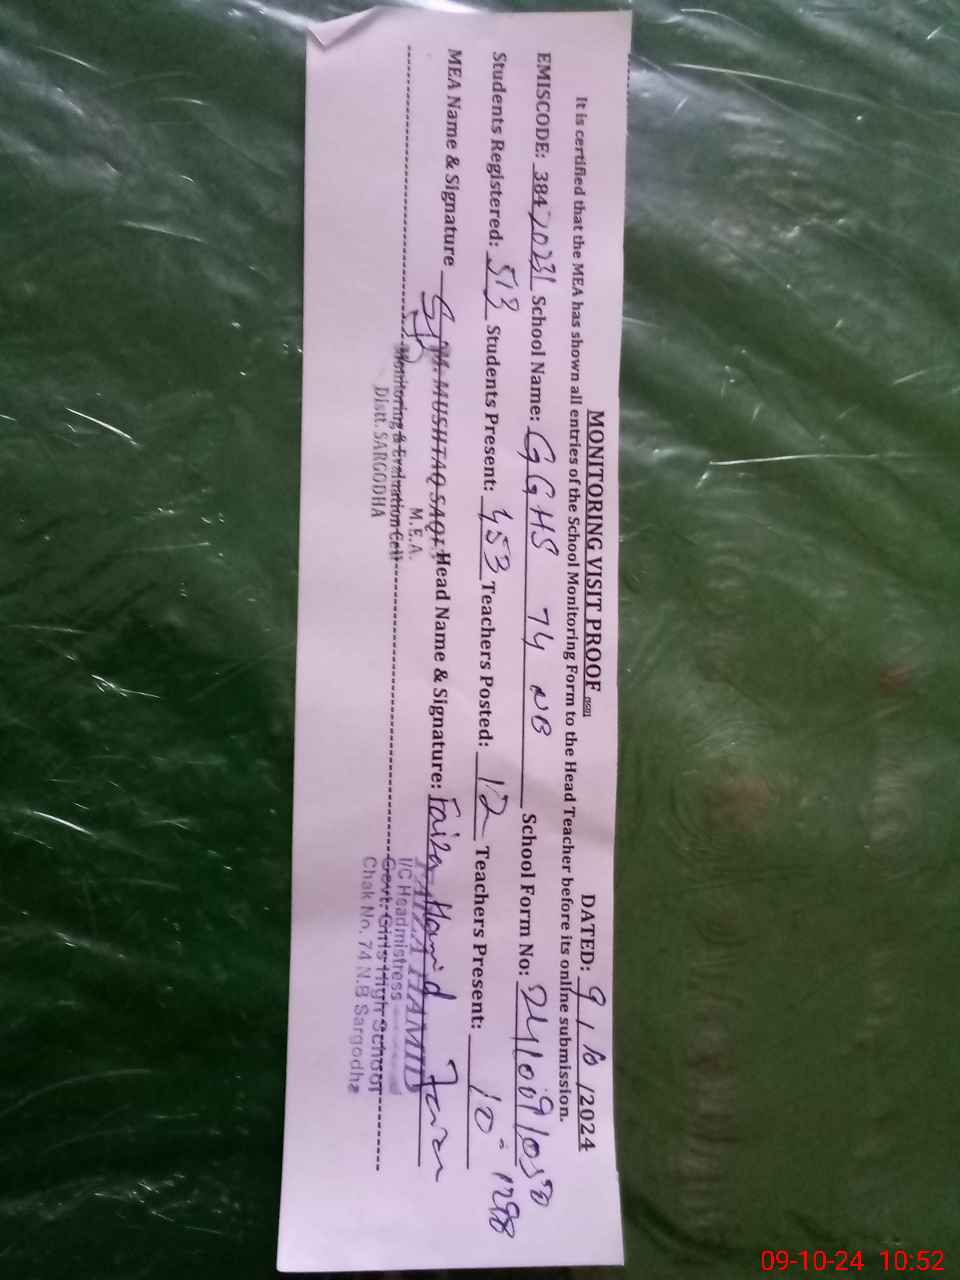 MONITORING VISIT PROOF
DATED: 9 / 10 /2024
It is certified that the MEA has shown all entries of the School Monitoring Form to the Head Teacher before its online submission.
EMISCODE: 38420231 School Name: GGHS 74 NB School Form No:
Students Registered: 513 Students Present: 453 Teachers Posted: 12 Teachers Present: 10
MEA Name & Signature M. MUSHTAQ SAQI Head Name & Signature: Faiza Hamid
M.E.A.
Monitoring & Evaluation Cell
Distt. SARGODHA
FAIZA HAMID
I/C Headmistress
Govt: Girls High School
Chak No. 74 N.B Sargodha
09-10-24 10:52